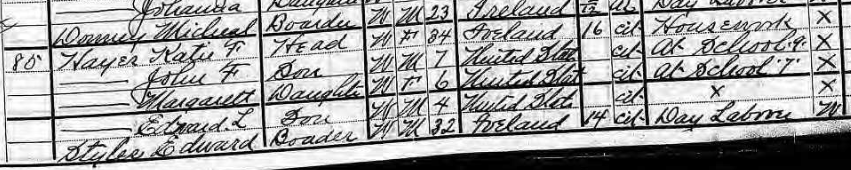 Johanna
Michael Boarder W M 23 Ireland 12 Day Labor
80 Hayes Katie F Head W F 34 Ireland 16 cit Housework X
John F Son W M 7 United States cit At School "9" X
Margarett Daughter W F 6 United States cit At School "7" X
Edward L Son W M 4 United States cit X X
Styles Edward Boader W M 32 Ireland 14 cit Day Laborer W